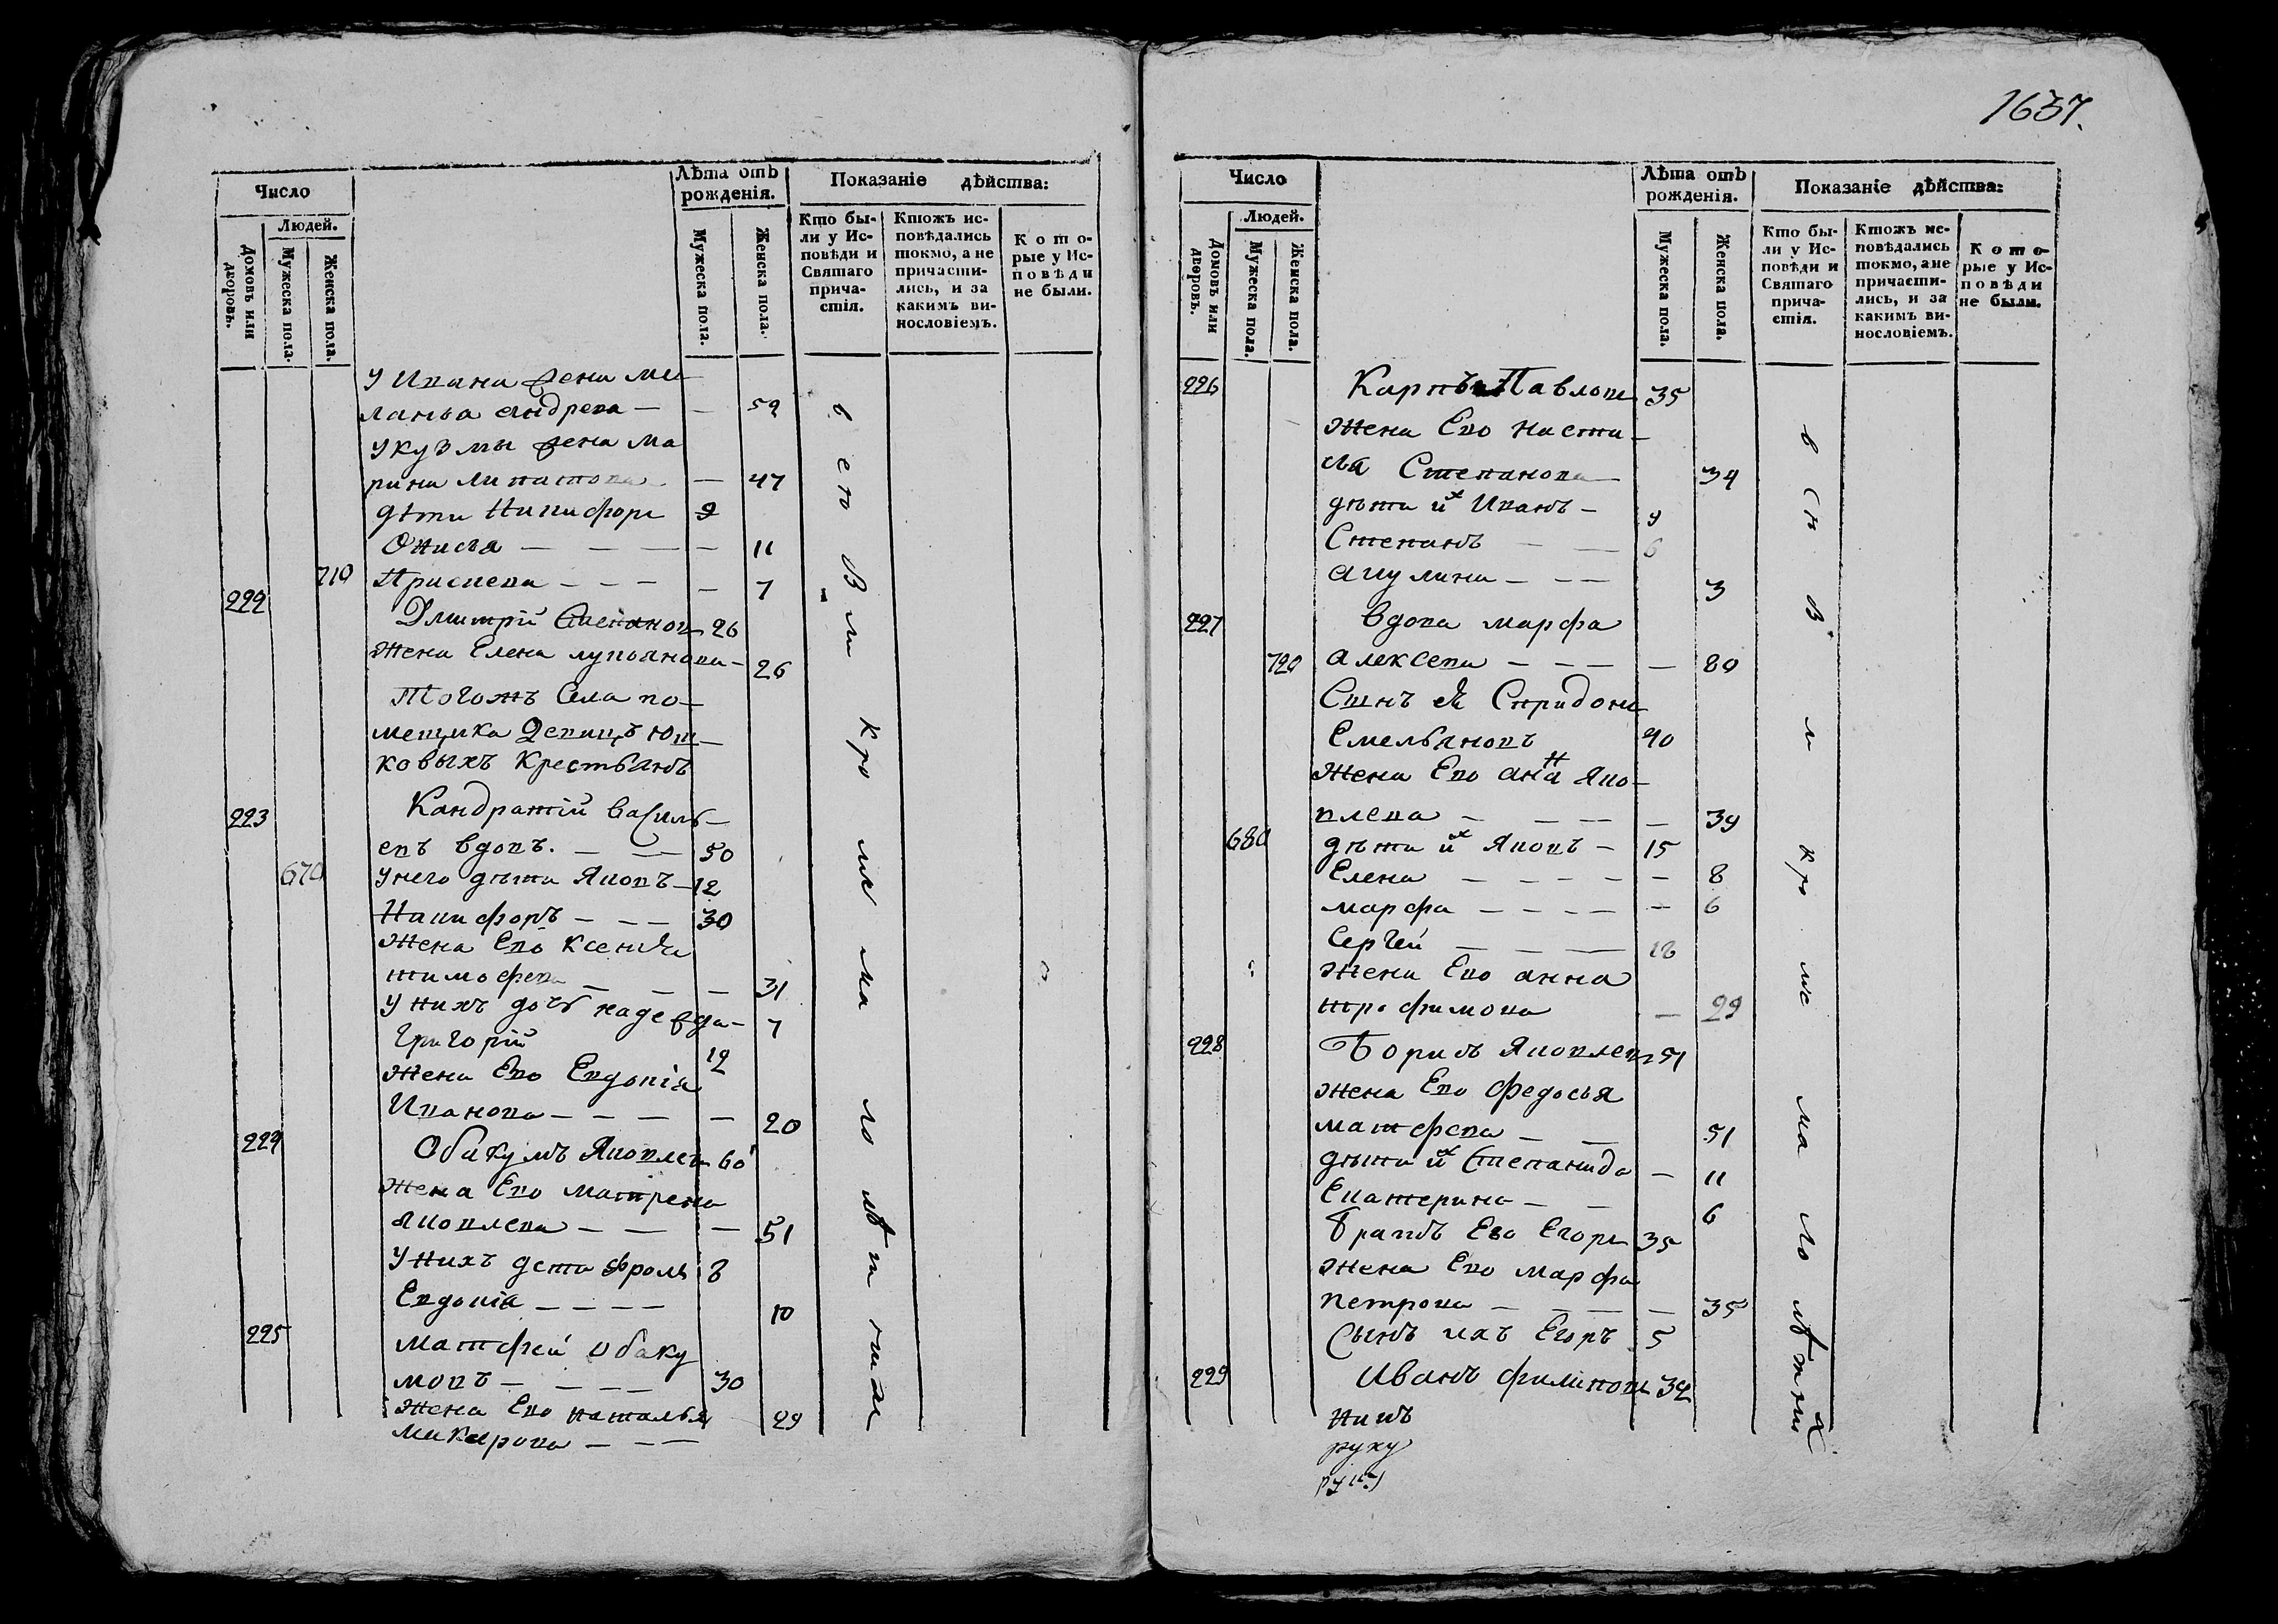 1637.
Число
Лѣта отъ рожденія.
Показаніе дѣйства:
Людей.
Домовъ или дворовъ.
Мужеска пола.
Женска пола.
Мужеска пола.
Женска пола.
Кто бы-
ли у Ис-
повѣди и
Святаго
прича-
стія.
Ктожъ ис-
повѣдались
токмо, а не
причасти-
лись, и за
какимъ ви-
нословіемъ.
Кото-
рые у Ис-
повѣди
не были.
у Ивана жена ма
ланья андрева — — 52
укузмы жена ма
рина — 47
дѣти Никифоръ 9
Онисья — — — — 11
710 — — — — 7
222 Дмитрій Степановъ 26
жена Елена лупьянова — 26
Тогожъ Села по—
мещика Девицъ Юш—
ковыхъ крестьянъ
223 Кандратій василь—
евъ вдовъ. — — 50
670 унего дѣти Яковъ — 12
Никифоръ — — — 30
жена Ево ксенья
тимофева — — — 31
у нихъ дочь надежда — 7
григорій 19
жена Ево Евдокія
Иванова — — — — 20
224 Обакумъ Яковлевъ 60
жена Ево матрена
яковлева — — — 51
у нихъ дети фролъ 8
Евдокія — — — — 10
225 матфей обаку
мовъ — — — — 30
жена Ево наталья 29
макарова — — —
всѣ Вы кромѣ малолѣтных
Число
Лѣта отъ рожденія.
Показаніе дѣйства:
Людей.
Домовъ или дворовъ.
Мужеска пола.
Женска пола.
Мужеска пола.
Женска пола.
Кто бы-
ли у Ис-
повѣди и
Святаго
прича-
стія.
Ктожъ ис-
повѣдались
токмо, а не
причасти-
лись, и за
какимъ ви-
нословіемъ.
Кото-
рые у Ис-
повѣди
не были.
226 Карпъ Павловъ 35
жена Ево наста—
сья Степанова — 34
дѣти их Иванъ — 9
Степанъ — — 6
акулина — — — 3
227 вдова марфа
720 алексева — — — — 80
Сынъ ея Спридонъ
Емельяновъ 40
жена Ево анна Яко—
влева — — — — — 39
680 дѣти их Яковъ — 15
Елена — — — — — — 8
марфа — — — — — 6
Сергей — — — 18
жена Ево анна
трофимова — 29
228 Борисъ Яковлевъ 51
жена Ево федосья
матфева — — 51
дѣти их Степанида — 11
Екатерина — — 6
братъ Ево Егоръ 35
жена Ево марфа
петрова — — — — 35
Сынъ ихъ Егоръ 5
229 Иванъ филиповъ 32
руку
кромѣ малолѣтных